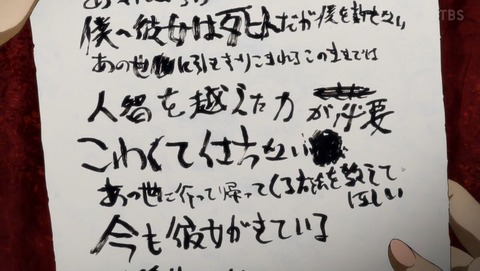 TBS
僕へ彼女は死んだが僕を許さない
あの世に引きずりこまれるこのままでは
人智を越えた力が必要
こわくて仕方ない
あの世に行って帰ってくる方法を教えて
ほしい
今も彼女がきている